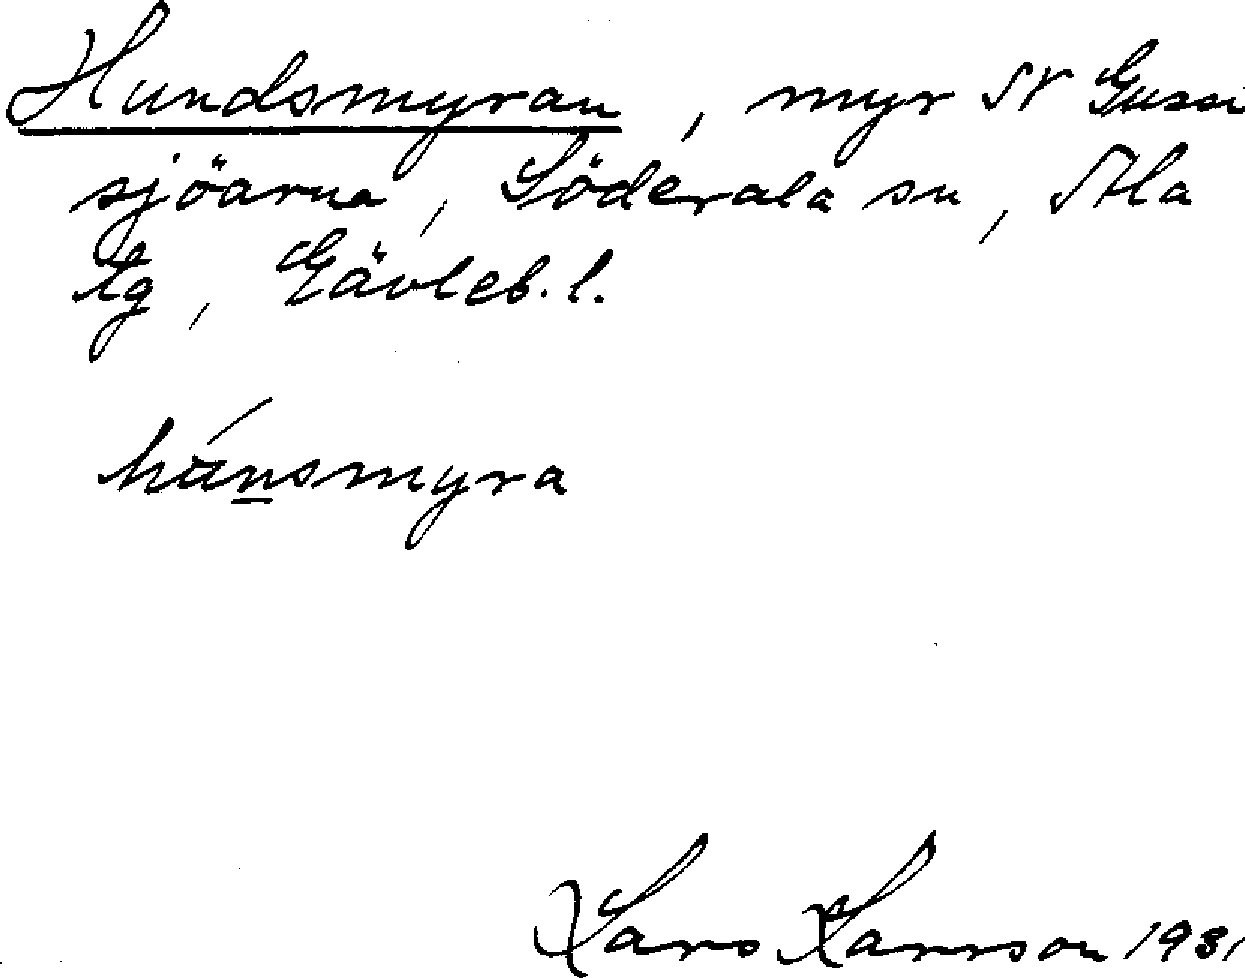 Hundsmyran, myr N Gussi
sjöarna, Söderala sn, Ala
tg, Gävleb. l.
hu̇nsmyra
Lars Larsson 1931